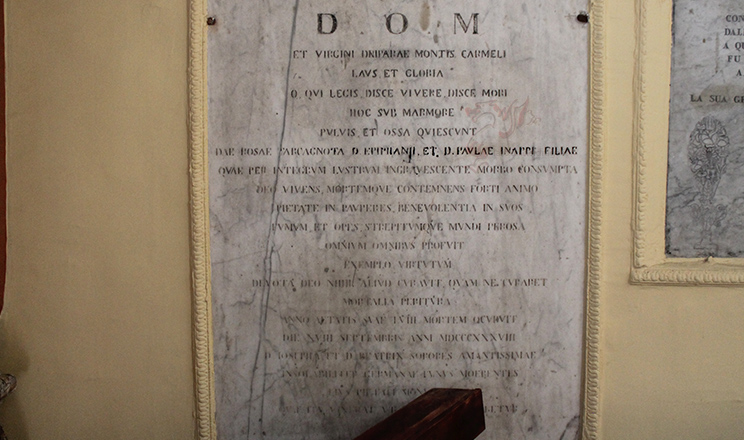 D O M
ET VIRGINI DEIPARAE MONTIS CARMELI
LAVS ET GLORIA
O QVI LEGIS, DISCE VIVERE, DISCE MORI
HOC SVB MARMORE
PVLVIS, ET OSSA QVIESCVNT
DAE ROSAE CARCAGNOTA D EPIPHANII, ET, D. PAVLAE INAPPE FILIAE
QVAE PER INTEGRVM LVSTRVM INGRAVESCENTE MORBO CONSVMPTA
DEO VIVENS, MORTEMQVE CONTEMNENS FORTI ANIMO
PIETATE IN PAVPERES, BENEVOLENTIA IN SVOS
FVMVM, ET OPES, STREPITVMQVE MVNDI PEROSA
OMNIVM OMNIBVS PROFVIT
EXEMPLO VIRTVTVM
DEVOTA DEO NIHIL ALIVD CVRAVIT, QVAM NE CVRARET
MORTALIA PERITVRA
ANNO AETATIS SVAE LVIII MORTEM
DIE XVIII SEPTEMBRIS ANNI MDCCCXXXVIII
D ET D BEATRIX SORORES AMANTISSIMAE
GERMANAE FVNVS MOERENTES
CON
DALL
A QU
FU
A
LA SUA GE